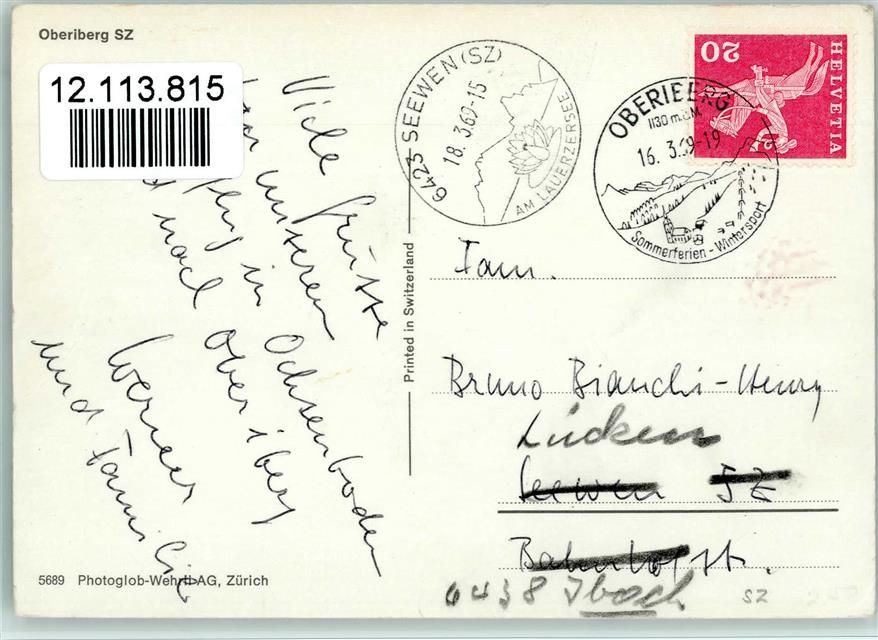 Oberiberg SZ
12.113.815
Viele Grüsse
von unserem
in Ochsenboden
nach Oberiberg
Werner
und Familie
5689 Photoglob-Wehrli AG, Zürich
Printed in Switzerland
6423 SEEWEN (SZ)
18.3.69-15
AM LAUERZERSEE
OBERIBERG
1130 m.ü.M
16.3.69-19
Sommerferien - Wintersport
HELVETIA
20
Fam.
Bruno Bianchi-Henry
Lücken
Seewen SZ
Bahnhofst.
6438 Ibach SZ